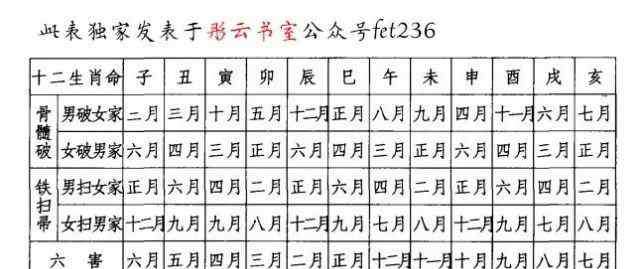 此表独家发表于彤云书室公众号fet236
十二生肖命 子 丑 寅 卯 辰 巳 午 未 申 酉 戌 亥
骨髓破 男破女家 二月 三月 十月 五月 十二月 正月 八月 九月 四月 十一月 六月 七月
女破男家 六月 四月 三月 正月 六月 四月 三月 正月 六月 四月 三月 正月
铁扫帚 男扫女家 正月 六月 四月 二月 正月 六月 四月 二月 正月 六月 四月 二月
女扫男家 十二月 九月 九月 八月 十二月 九月 七月 八月 十二月 九月 七月 八月
六害 六月 五月 四月 三月 二月 正月 十二月 十一月 十月 九月 八月 七月